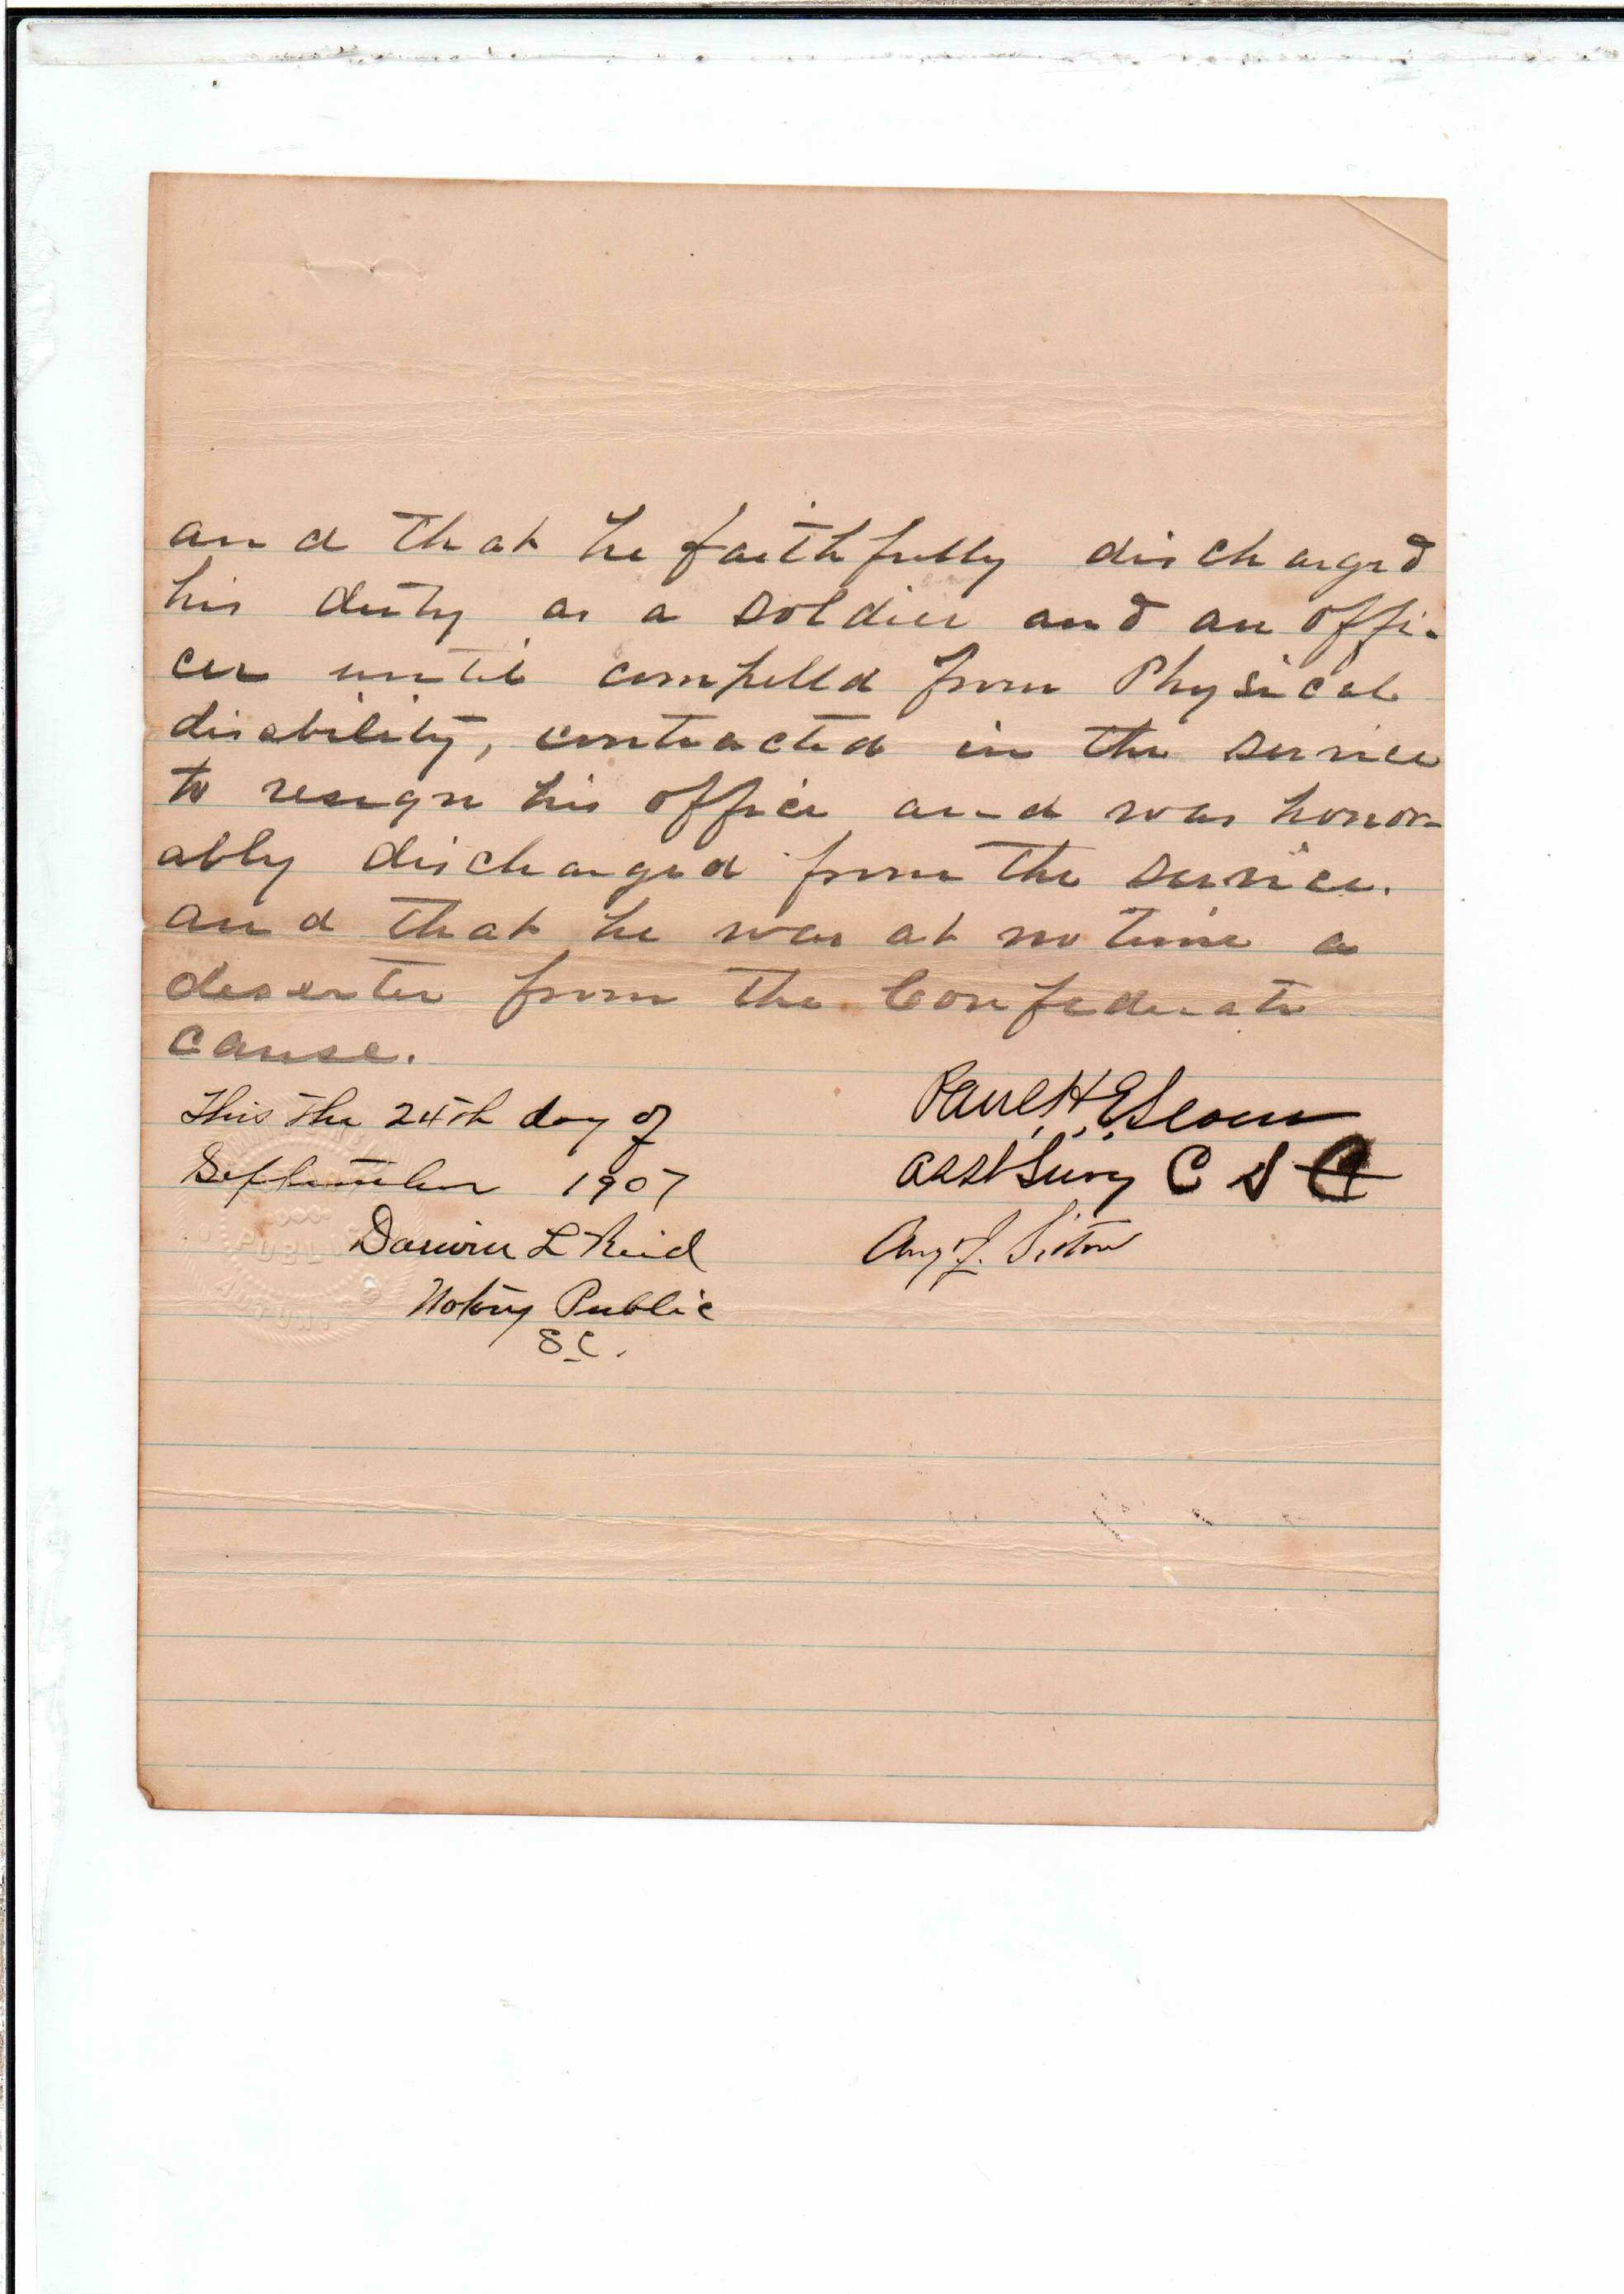 and that he faithfully discharged
his duty as a soldier and an offi-
cer until compelld from Physical
disability, contracted in the service
to resign his office and was honor-
ably discharged from the service.
and that he was at no time a
deserter from the Confederate
cause.
This the 24th day of
September 1907
Paul H. E. Sloan
Asst Surg C S A
Darwin L Reid
Notary Public
S C.
Aug. J.
PUBLIC